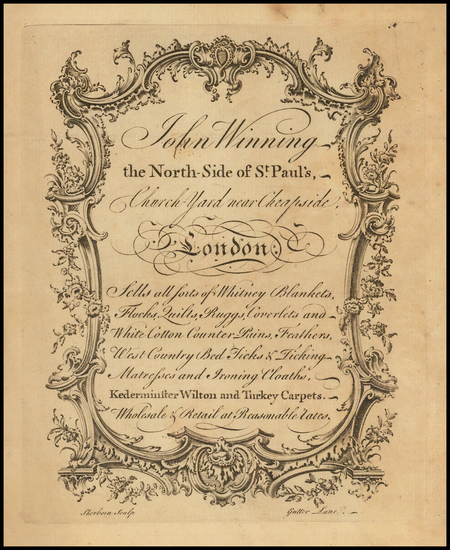 John Winning
the North-Side of St. Paul's,
Church-Yard near Cheapside,
London:
Sells all sorts of Whitney Blankets,
Flocks, Quilts, Ruggs, Coverlets and
White Cotton Counter Pains, Feathers,
West Country Bed Ticks & Ticking
Matresses and Ironing Cloaths,
Kederminster Wilton and Turkey Carpets.
Wholesale & Retail at Reasonable Rates.
Sherborn Sculp Gutter Lane